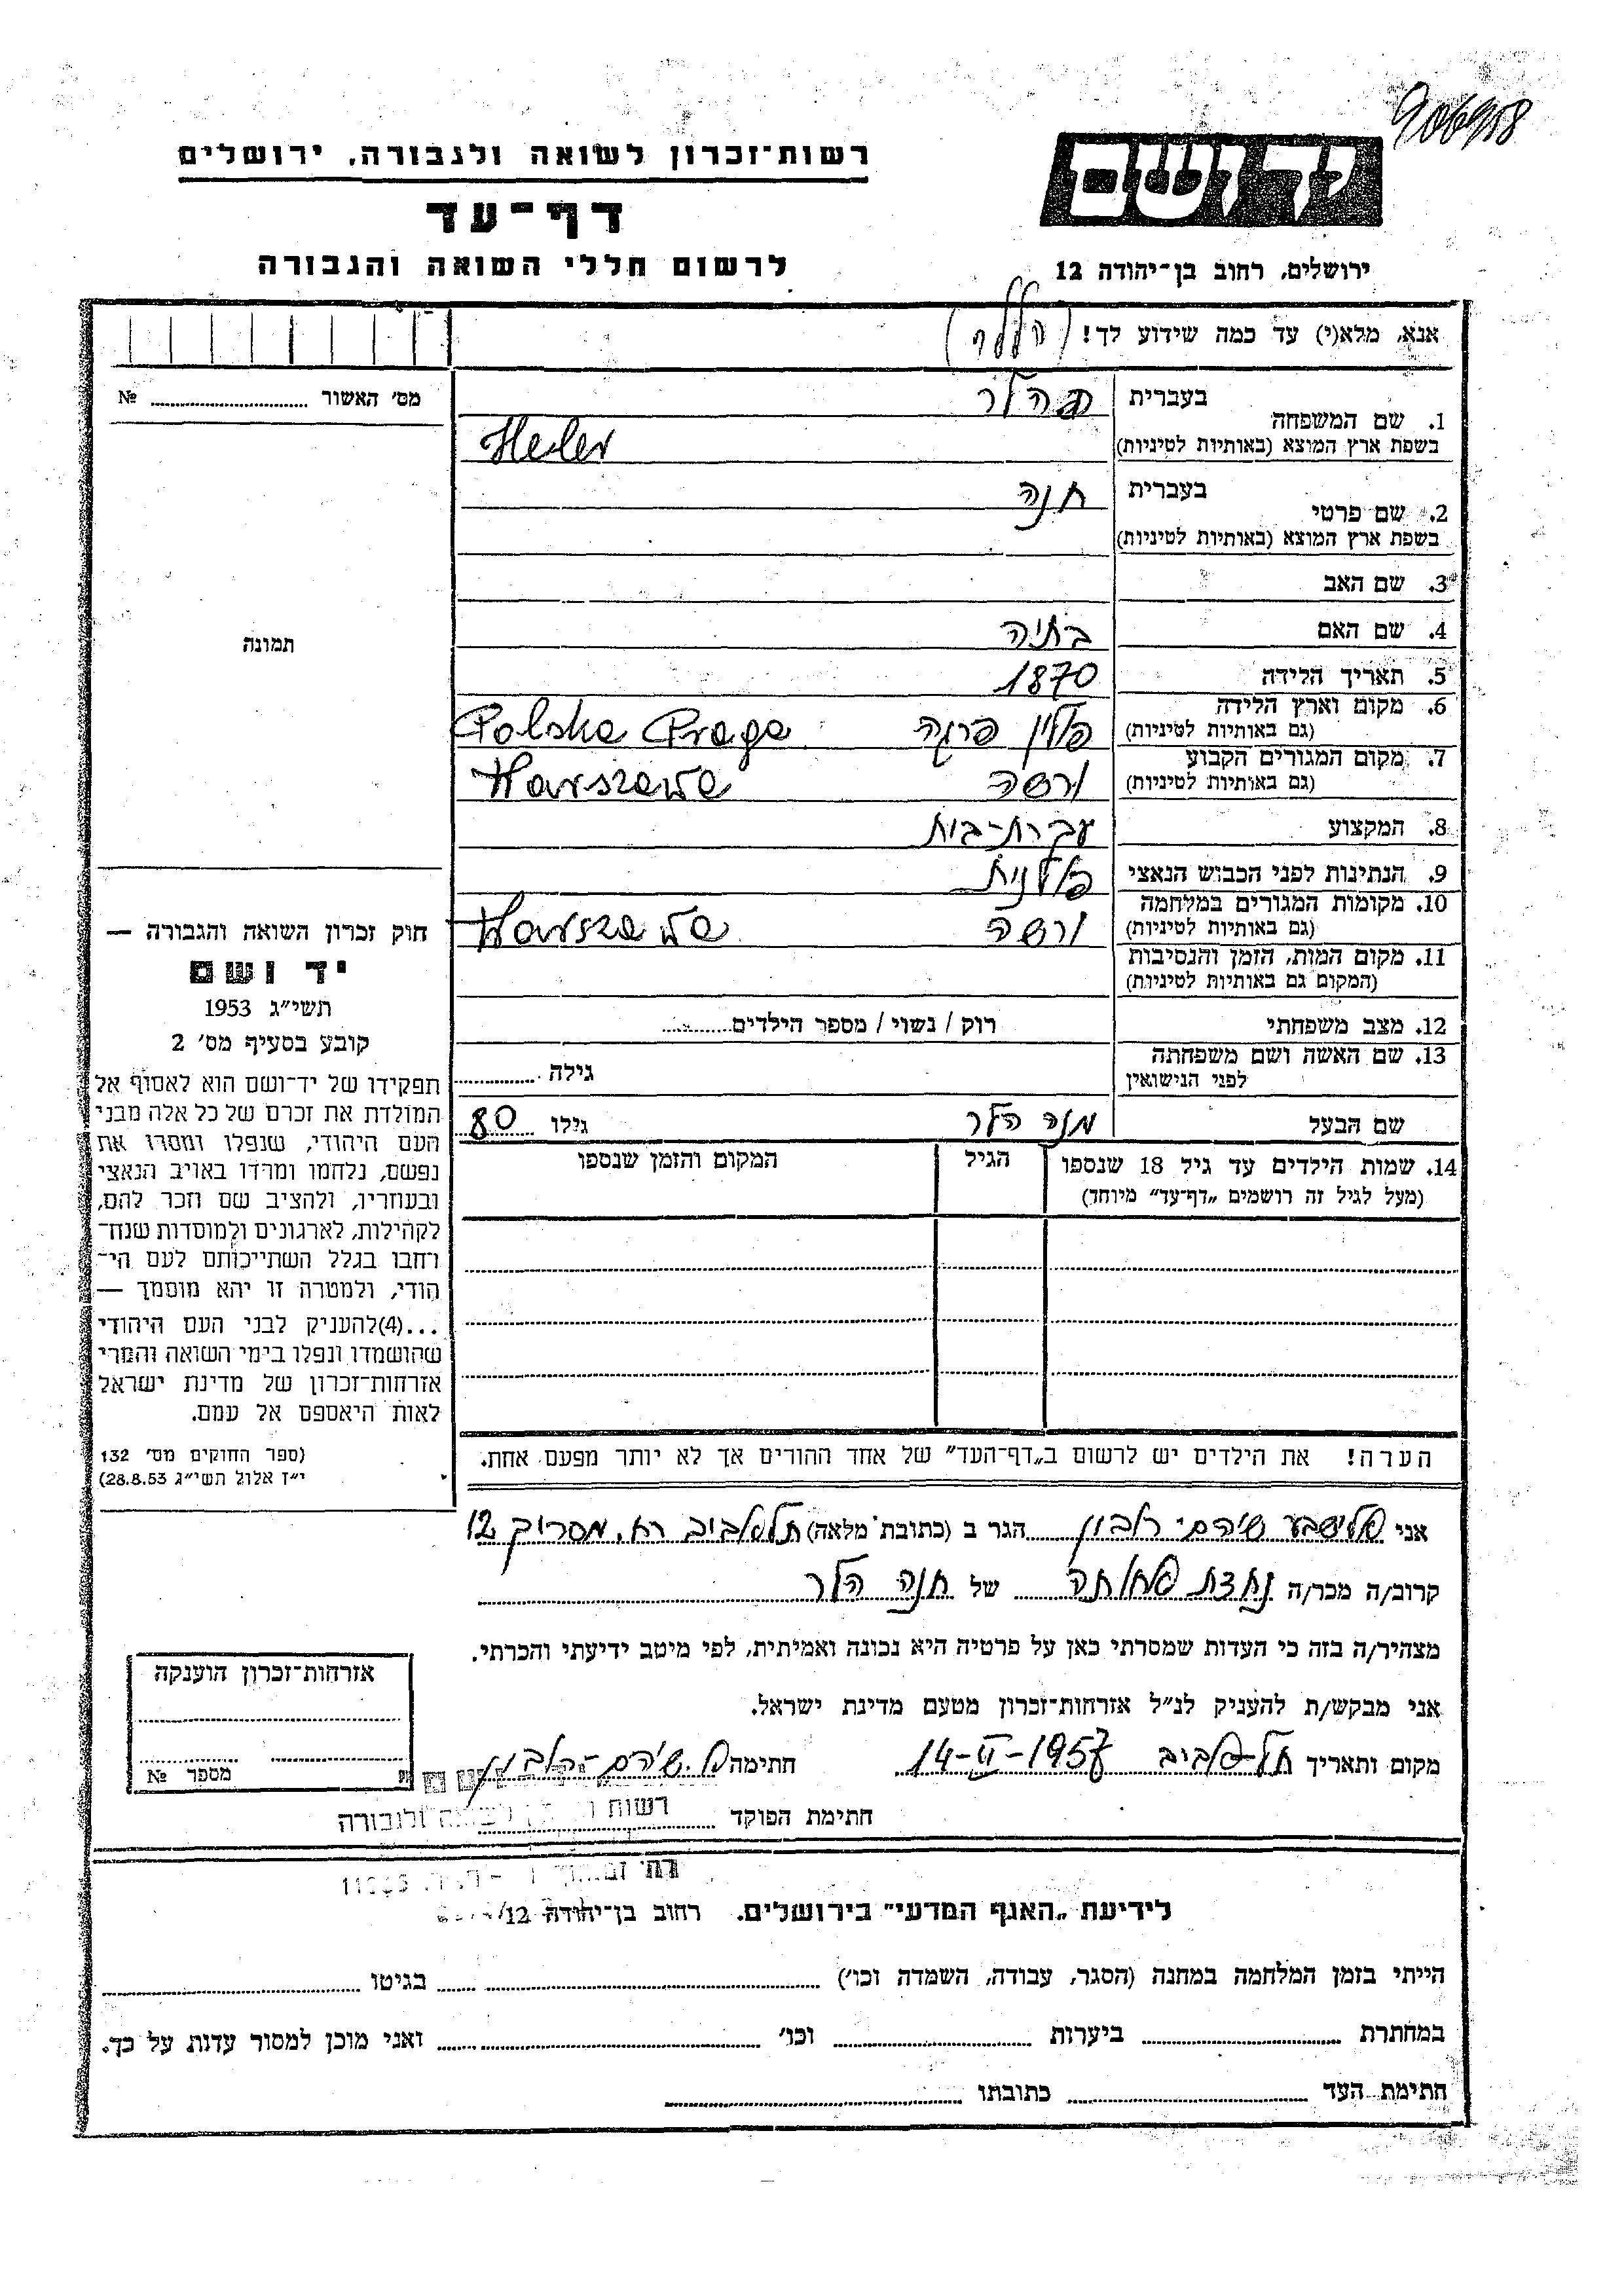 906958
רשות־זכרון לשואה ולגבורה, ירושלים
דף־עד
לרשום חללי השואה והגבורה
ידושם
ירושלים, רחוב בן־יהודה 12
אנא, מלא(י) עד כמה שידוע לך!
מס' האשור № ........
1. שם המשפחה בעברית הלר
בשפת ארץ המוצא (באותיות לטיניות) Heler
2. שם פרטי בעברית חנה
בשפת ארץ המוצא (באותיות לטיניות)
3. שם האב
4. שם האם בתיה
5. תאריך הלידה 1870
6. מקום וארץ הלידה (גם באותיות לטיניות) פולין פרגה Polska Praga
7. מקום המגורים הקבוע (גם באותיות לטיניות) ורשה Warszawa
8. המקצוע עקרת-בית
9. הנתינות לפני הכבוש הנאצי פולנית
10. מקומות המגורים במלחמה (גם באותיות לטיניות) ורשה Warszawa
11. מקום המות, הזמן והנסיבות
(המקום גם באותיות לטיניות)
12. מצב משפחתי רוק / נשוי / מספר הילדים........
13. שם האשה ושם משפחתה לפני הנישואין גילה ........
שם הבעל מנה הלר גילו 80
14. שמות הילדים עד גיל 18 שנספו הגיל המקום והזמן שנספו
(מעל לגיל זה רושמים „דף־עד" מיוחד)
תמונה
חוק זכרון השואה והגבורה —
יד ושם
תשי״ג 1953
קובע בסעיף מס' 2
תפקידו של יד־ושם הוא לאסוף אל
המולדת את זכרם של כל אלה מבני
העם היהודי, שנפלו ומסרו את
נפשם, נלחמו ומרדו באויב הנאצי
ובעוזריו, ולהציב שם וזכר להם,
לקהילות, לארגונים ולמוסדות שנח־
רחבו בגלל השתייכותם לעם הי־
הודי, ולמטרה זו יהא מוסמך —
...(4)להעניק לבני העם היהודי
שהושמדו ונפלו בימי השואה והמרי
אזרחות־זכרון של מדינת ישראל
לאות היאספם אל עמם.
(ספר החוקים מס' 132
י״ז אלול תשי״ג 28.8.53)
הערה! את הילדים יש לרשום ב„דף־העד" של אחד ההורים אך לא יותר מפעם אחת.
אני אלישבע שוהם-רבון הגר ב (כתובת מלאה) תל אביב רח. מסריק 12
קרוב/ה מכר/ה נכדת אחותה של חנה הלר
מצהיר/ה בזה כי העדות שמסרתי כאן על פרטיה היא נכונה ואמיתית, לפי מיטב ידיעתי והכרתי.
אני מבקש/ת להעניק לנ״ל אזרחות־זכרון מטעם מדינת ישראל.
מקום ותאריך תל-אביב 14-II-1957 חתימה
חתימת הפוקד ........
רשות ולגבורה
אזרחות־זכרון הוענקה
מספר №
לידיעת „האגף המדעי" בירושלים. רחוב בן־יהודה 12
הייתי בזמן המלחמה במחנה (הסגר, עבודה, השמדה וכו') ........ בגיטו ........
במחתרת ........ ביערות ........ וכו' ........ ואני מוכן למסור עדות על כך.
חתימת העד ........ כתובתו ........